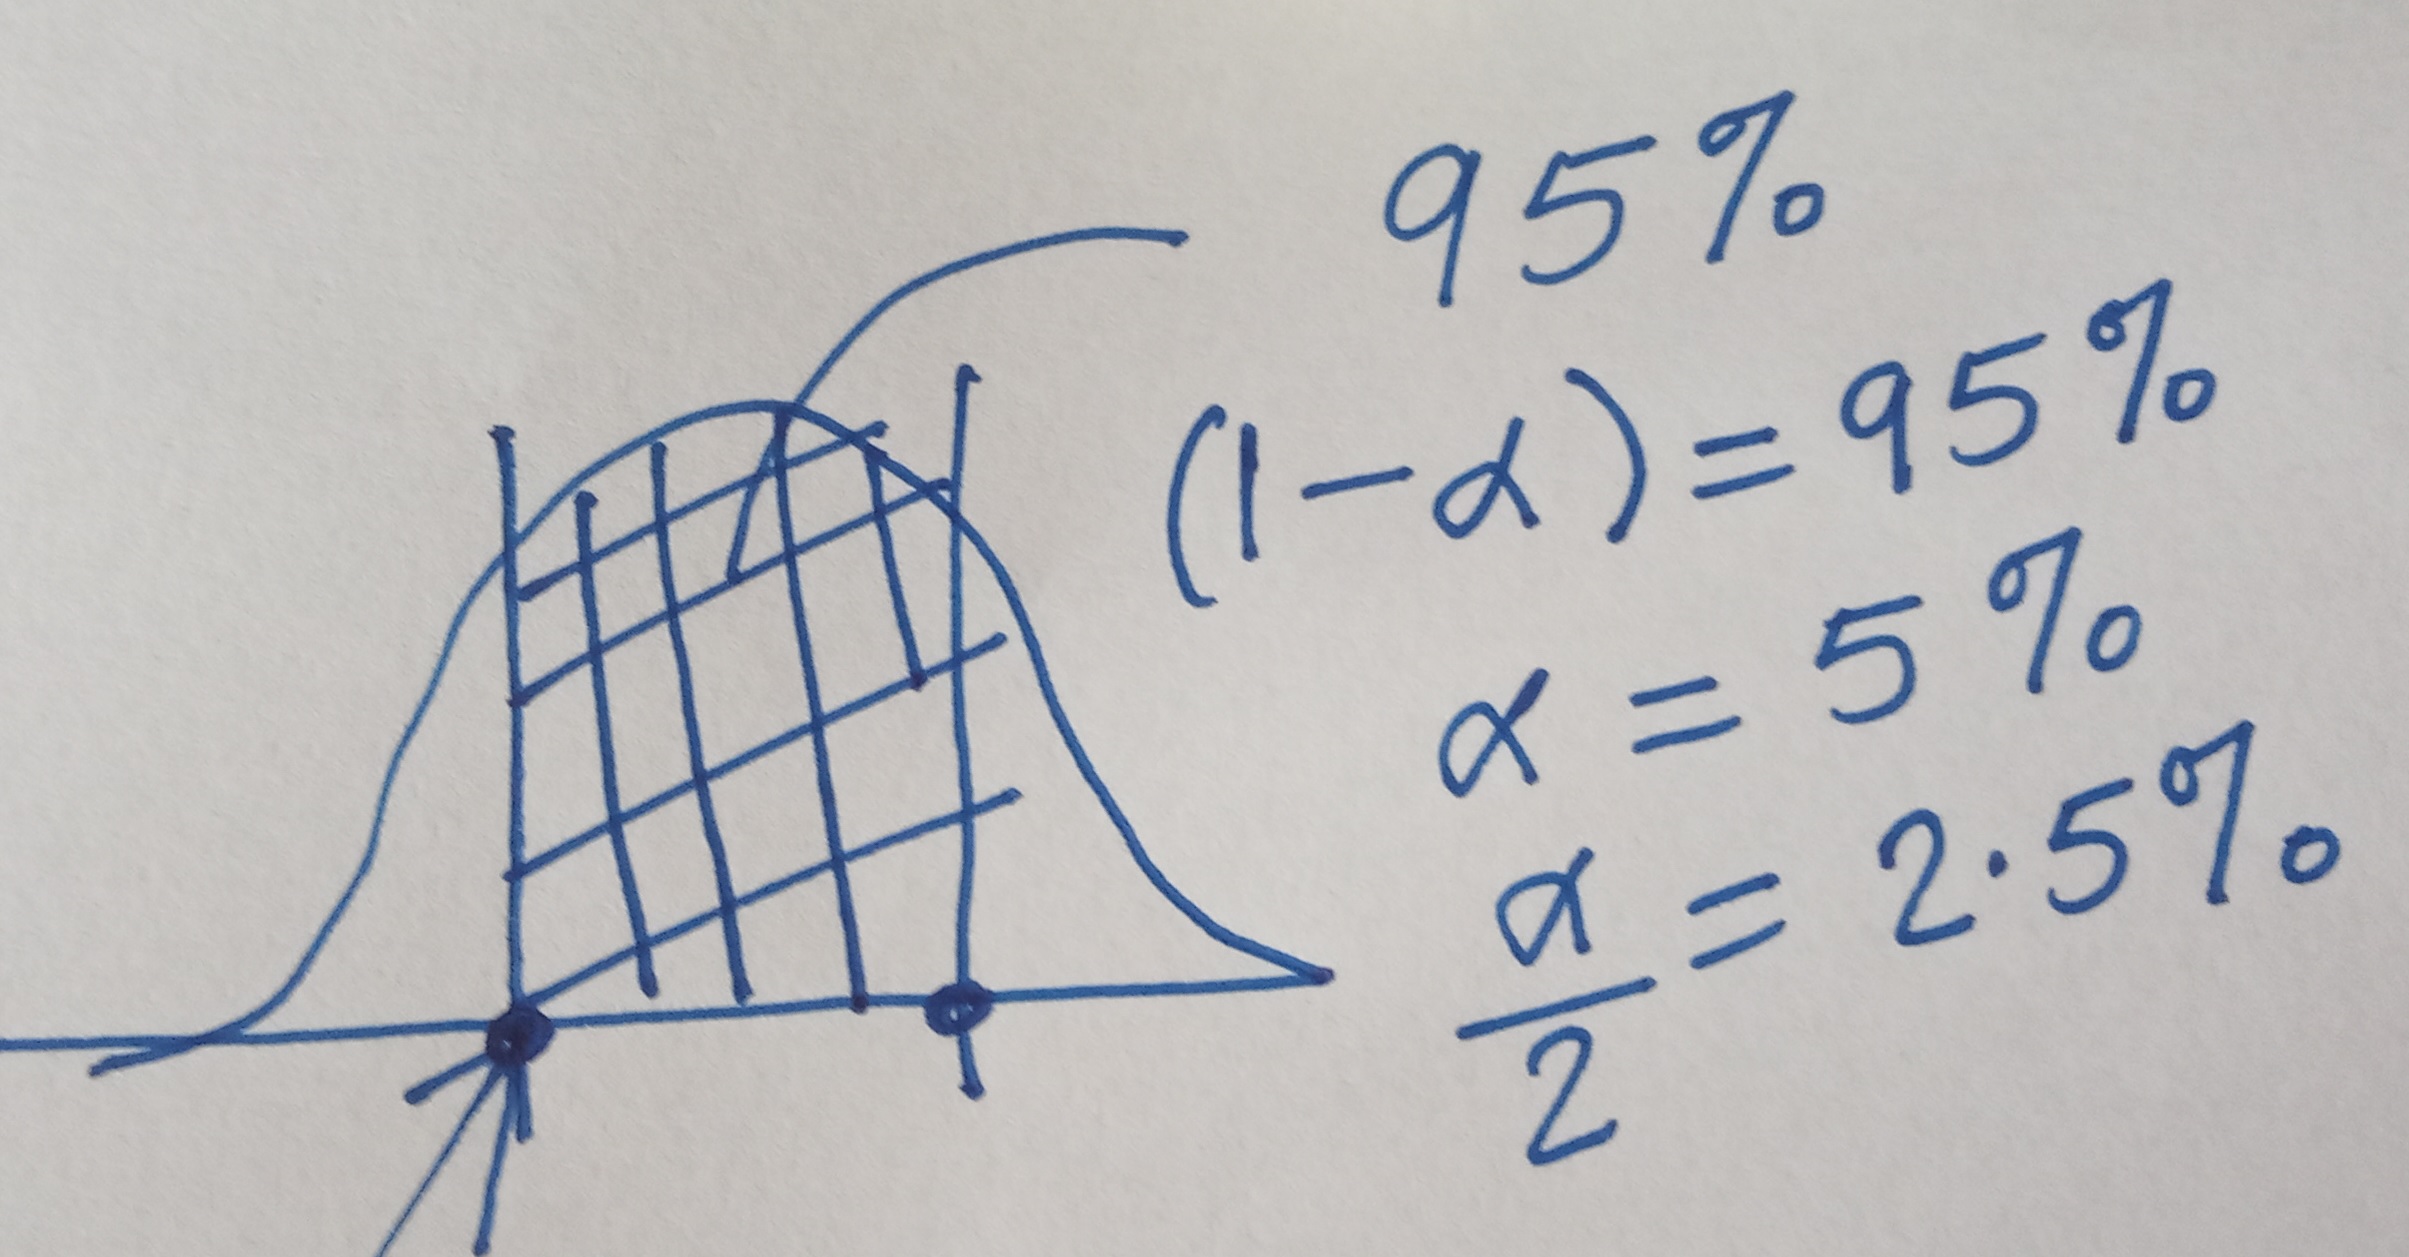 95%
(1-α)=95%
α = 5%
α/2 = 2.5%